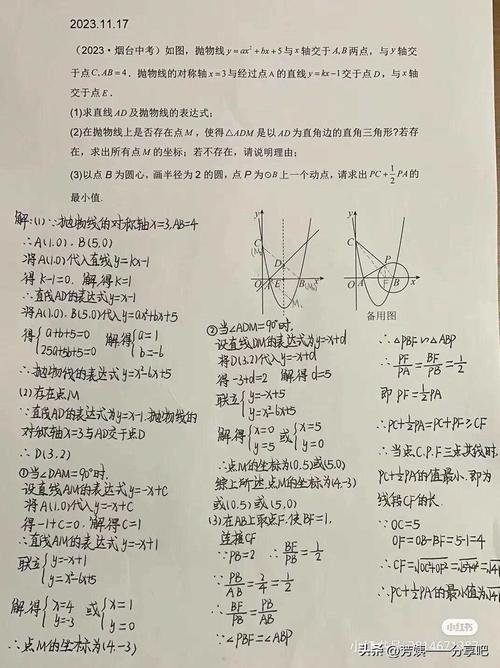 2023.11.17
（2023·烟台中考）如图，抛物线y=ax²+bx+5与x轴交于A,B两点，与y轴交
于点C, AB=4．抛物线的对称轴x=3与经过点A的直线y=kx-1交于点D，与x轴
交于点E．
(1)求直线AD及抛物线的表达式；
(2)在抛物线上是否存在点M，使得△ADM是以AD为直角边的直角三角形?若存
在，求出所有点M的坐标；若不存在，请说明理由；
(3)以点B为圆心，画半径为2的圆，点P为⊙B上一个动点，请求出PC+1/2PA的
最小值.
解:(1)∵抛物线的对称轴x=3,AB=4
∴A(1,0), B(5,0)
将A(1,0)代入直线y=kx-1
得k-1=0. 解得k=1
∴直线AD的表达式y=x-1
将A(1,0), B(5,0)代入y=ax²+bx+5
得{a+b+5=0
25a+5b+5=0 解得{a=1
b=-6
∴抛物线的表达式y=x²-6x+5
(2)存在点M
∵直线AD的表达式为y=x-1.抛物线的
对称轴x=3与AD交于点D
∴D(3,2)
①当∠DAM=90°时.
设直线AM的表达式y=-x+C
将A(1,0)代入y=-x+C
得-1+C=0. 解得C=1
∴直线AM的表达式y=-x+1
联立{y=-x+1
y=x²-6x+5
解得{x=4
y=-3 或{x=1
y=0
∴点M的坐标为(4,-3)
y
C
D
O
A
E
B
x
M
y
C
P
O
A
F
B
x
备用图
②当∠ADM=90°时.
设直线DM的表达式为y=-x+d
将D(3,2)代入y=-x+d
得-3+d=2 解得d=5
联立{y=-x+5
y=x²-6x+5
解得{x=0
y=5 或{x=5
y=0
∴点M的坐标为(0,5)或(5,0)
综上所述点M的坐标为(4,-3)
或(0,5)或(5,0)
(3)在AB上取点F.使BF=1.
连接CF
∵PB=2 ∴BF/PB=1/2
∵PB/AB=2/4=1/2
∴BF/PB=PB/AB
∵∠PBF=∠ABP
∴△PBF∽△ABP
∴PF/PA=BF/PB=1/2
即PF=1/2PA
∴PC+1/2PA=PC+PF≥CF
∴当点C.P.F三点共线时.
PC+1/2PA的值最小.即为
线段CF的长.
∵OC=5
OF=OB-BF=5-1=4
∴CF=√OC²+OF²=√5²+4²=√41
∴PC+1/2PA的最小值为√41
小红书
头条@芳姨一分享吧